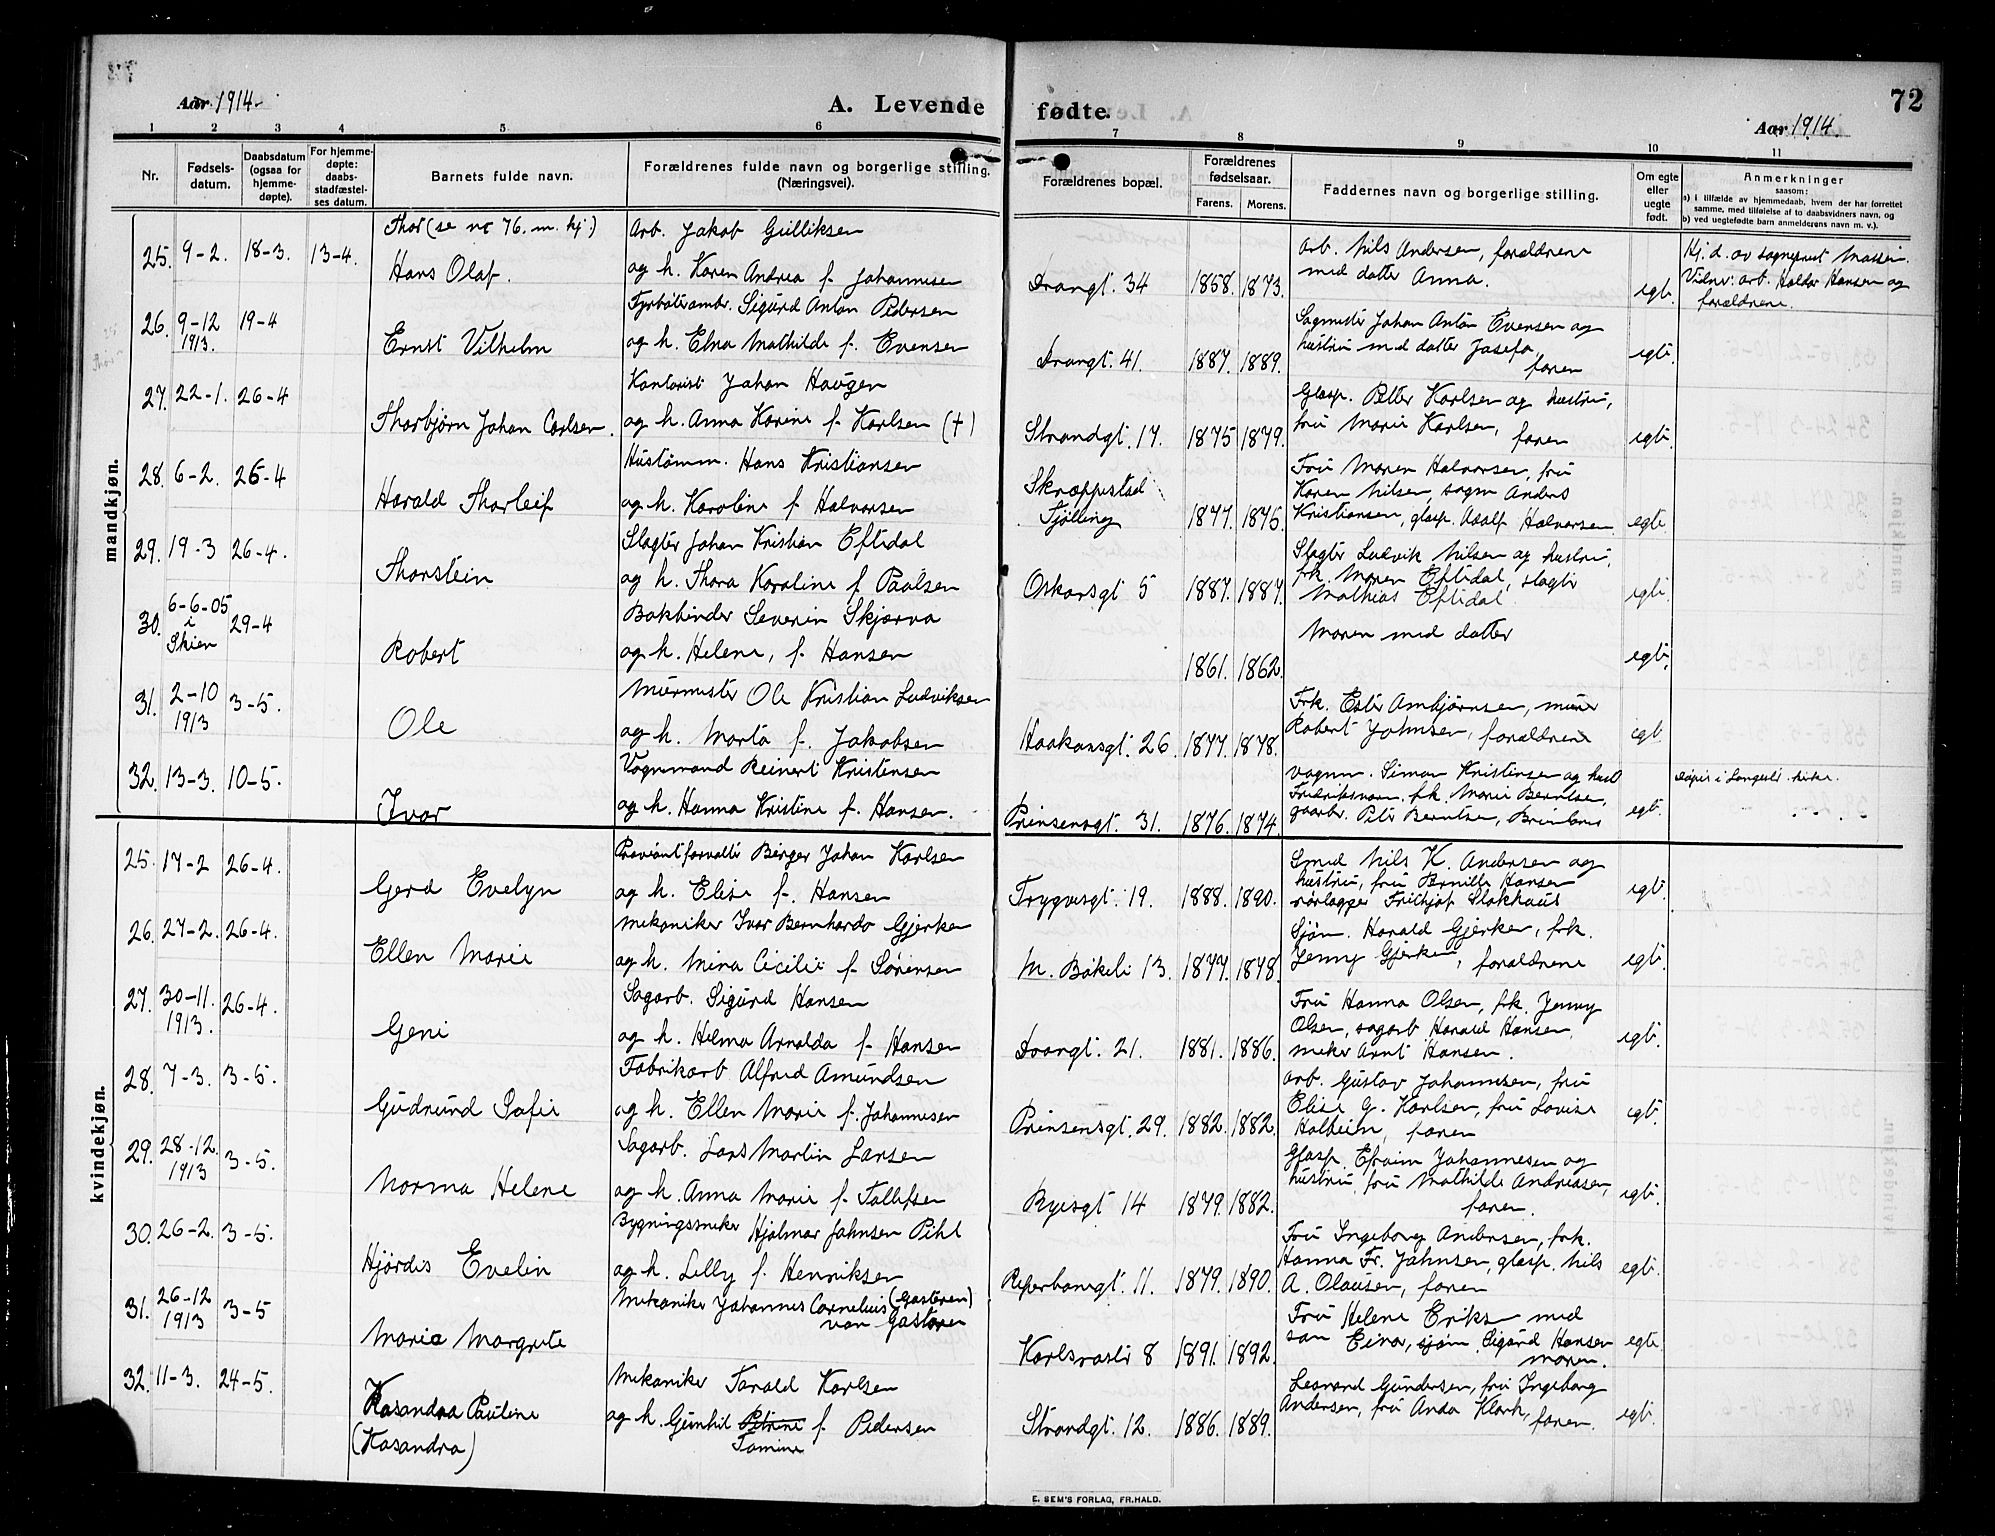 Aar 1914.
A. Levende fødte.
72
Aar 1914.
1 2 3 4 5 6 7 8 9 10 11
Nr.
Fødsels-
datum.
Daabsdatum
(ogsaa for
hjemme-
døpte).
For hjemme-
døpte:
daabs-
stadfæstel-
ses datum.
Barnets fulde navn.
Forældrenes fulde navn og borgerlige stilling.
(Næringsvei).
Forældrenes bopæl.
Forældrenes
fødselsaar.
Farens. Morens.
Faddernes navn og borgerlige stilling.
Om egte
eller
uegte
født.
Anmerkninger
saasom:
a) i tilfælde av hjemmedaab, hvem der har forrettet
samme, med tilføielse af to daabsvidners navn, og
b) ved uegtefødte barn anmelderens navn m. v.).
mandkjøn.
25. 9-2. 18-3. 13-4.
Thor (se nr 76. m. kj.)
Hans Olaf.
Arb. Jakob Gulliksen
og h. Karen Andrea f. Johannesen
Drangt. 34 1868. 1873.
Arb. Nils Andersen, forældrene
med datter Anna.
egte.
Hj. d. av sogneprest Massen.
Vidner: arb. Haldor Hansen og
forældrene.
26. 9-12 1913. 19-4
Ernst Vilhelm
Fyrbøter Sigurd Anton Pedersen
og h. Elna Mathilde f. Evensen
Drangt. 41. 1887. 1889.
Sagmester Johan Anton Evensen og
hustru med datter Josefa,
faren
egte.
27. 22-1. 26-4
Thorbjørn Johan Carlsen.
Kontorist Johan Haugen
og h. Anna Karine f. Karlsen (+)
Strandgt. 17. 1875 1879.
Glasp. Petter Karlsen og hustru,
fru Marie Karlsen, faren
egte.
28. 6-2. 26-4
Harald Thorleif
Hustømm. Hans Kristiansen
og h. Karoline f. Halvorsen
Skræppestad
Tjølling 1877. 1875.
Fru Maren Halvorsen, fru
Karen Nilsen, sagm Anders
Kristiansen, glasp. Adolf Halvorsen
egte
29. 19-3 26-4.
Thorstein
Slagter Johan Kristian Eftedal
og h. Thora Karoline f. Paulsen
Oskarsgt 5 1887. 1887.
Slagter Ludvik Nilsen og hustru,
frk. Maren Eftedal, slagter
Mathias Eftedal
egte.
30. 6-6-05 i Skien 29-4
Robert
Bokbinder Severin Skjerva
og h. Helene, f. Hansen
1861. 1862.
Moren med datter
egte.
31. 2-10 1913 3-5.
Ole
Murmester Ole Kristian Ludviksen
og h. Marta f. Jakobsen
Haakonsgt. 26. 1877. 1878.
Frk. Ester Arnbjørnsen, murer
Robert Johnsen, forældrene
egt.
32. 13-3. 10-5.
Ivar
Vognmand Reinert Kristensen
og h. Hanna Kristine f. Hansen.
Prinsensgt. 31. 1876. 1874
vognm. Simon Kristensen og hust
Fredriksværn, frk. Marie Berntsen,
gaarbr. Peter Berntsen, Brunlanes
egt.
døpt i Langestr. kirke.
kvindekjøn.
25. 17-2 26-4.
Gerd Evelyn
Proviantforvalter Birger Johan Karlsen
og h. Elise f. Hansen
Trygvesgt. 19. 1888. 1890.
Smed Nils K. Andersen og
hustru, fru Bernille Hansen
rørlægger Frithjof Stokhaus
egte.
26. 27-2. 26-4.
Ellen Marie
Mekaniker Ivar Bernhardo Gjerken
og h. Mina Cicilie f. Sørensen
M. Bøkeli 13. 1877. 1878.
Sjøm. Harald Gjerken, frk.
Jenny Gjerken, forældrene
egte.
27. 30-11. 1913. 26-4.
Geni
Sagarb. Sigurd Hansen
og h. Helma Arnalda f. Hansen
Drangt. 21. 1881. 1886.
Fru Hanna Olsen, frk. Jenny
Olsen, sagarb. Harald Hansen,
meker Arnt Hansen.
egte.
28. 7-3. 3-5.
Gudrund Sofie
Fabrikarb. Alfred Amundsen
og h. Ellen Marie f. Johannesen
Prinsensgt. 29. 1882. 1882.
Arb. Gustav Johannesen, fru
Elise G. Karlsen, fru Lovise
Holheim, faren
egte.
29. 28-12. 1913 3-5.
Norma Helene
Sagarb. Lars Martin Larsen
og h. Anna Marie f. Tollefsen
Ryesgt 14 1879. 1882.
Glasp. Efraim Johannesen og
hustru, fru Mathilde Andreasen,
faren.
egte.
30. 26-2. 3-5.
Hjørdis Evelin
Bygningssneker Hjalmar Johnsen Pihl
og h. Lilly f. Henriksen
Reperbanegt. 11. 1879. 1890.
Fru Ingeborg Andersen, frk.
Hanna Fr. Johnsen, glasp. Nils
A. Olausen, faren
egte.
31. 26-12 1913 3-5
Maria Margrete
Mekaniker Johannes Cornelius (Gasteren)
van Gasteren
Karlsrostr 8 1891. 1892.
Fru Helene Eriksen med
søn Einar, sjøm. Sigurd Hansen
moren.
egte
32. 11-3. 24-5.
Kasandra Pauline
(Kasandra)
Mekaniker Tarald Karlsen
og h. Gunhil Petrine f. Pedersen
Tamine
Strandgt. 12. 1886. 1889.
Leonard Gundersen, fru Ingeborg
Andersen, fru Anda Klark, faren.
egte.
E. SEM'S FORLAG, FR.HALD.